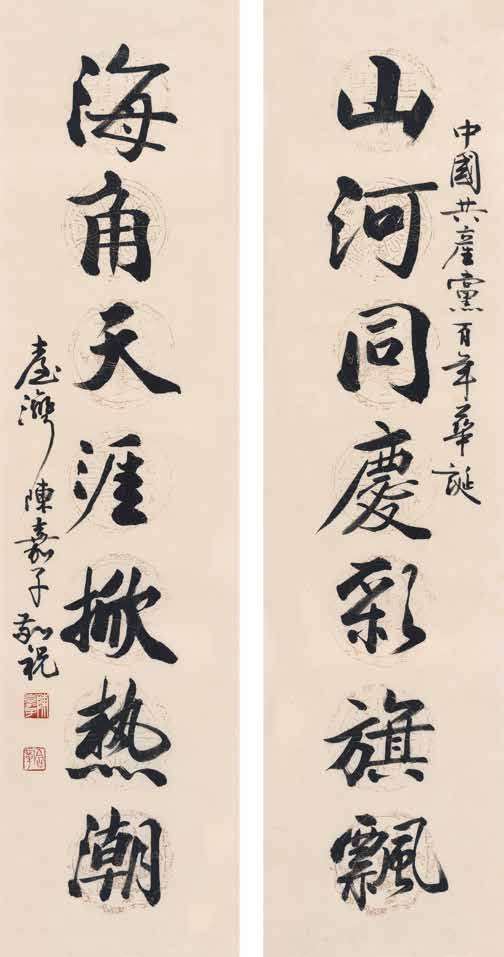 中國共產黨百年華誕
山河同慶彩旗飄
海角天涯掀熱潮
臺灣陳嘉子敬祝